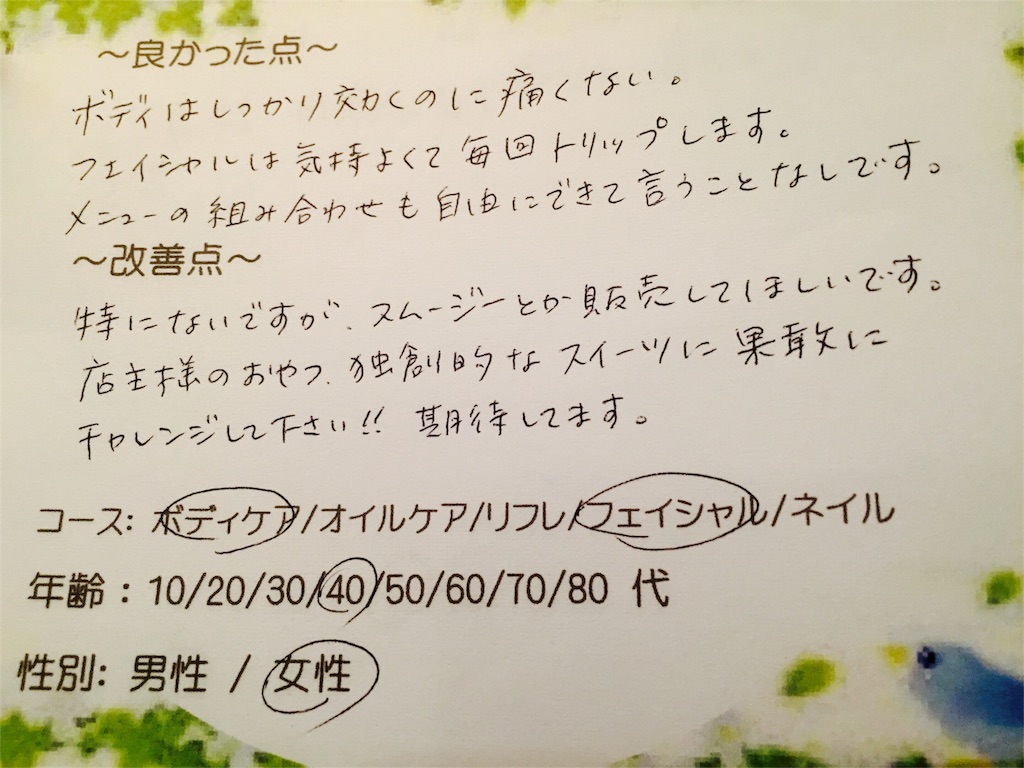 ～良かった点～
ボディはしっかり効くのに痛くない。
フェイシャルは気持よくて毎回トリップします。
メニューの組み合わせも自由にできて言うことなしです。
～改善点～
特にないですが、スムージーとか販売してほしいです。
店主様のおやつ、独創的なスイーツに果敢に
チャレンジして下さい!! 期待してます。
コース: ボディケア/オイルケア/リフレ/フェイシャル/ネイル
年齢：10/20/30/40/50/60/70/80 代
性別: 男性 / 女性